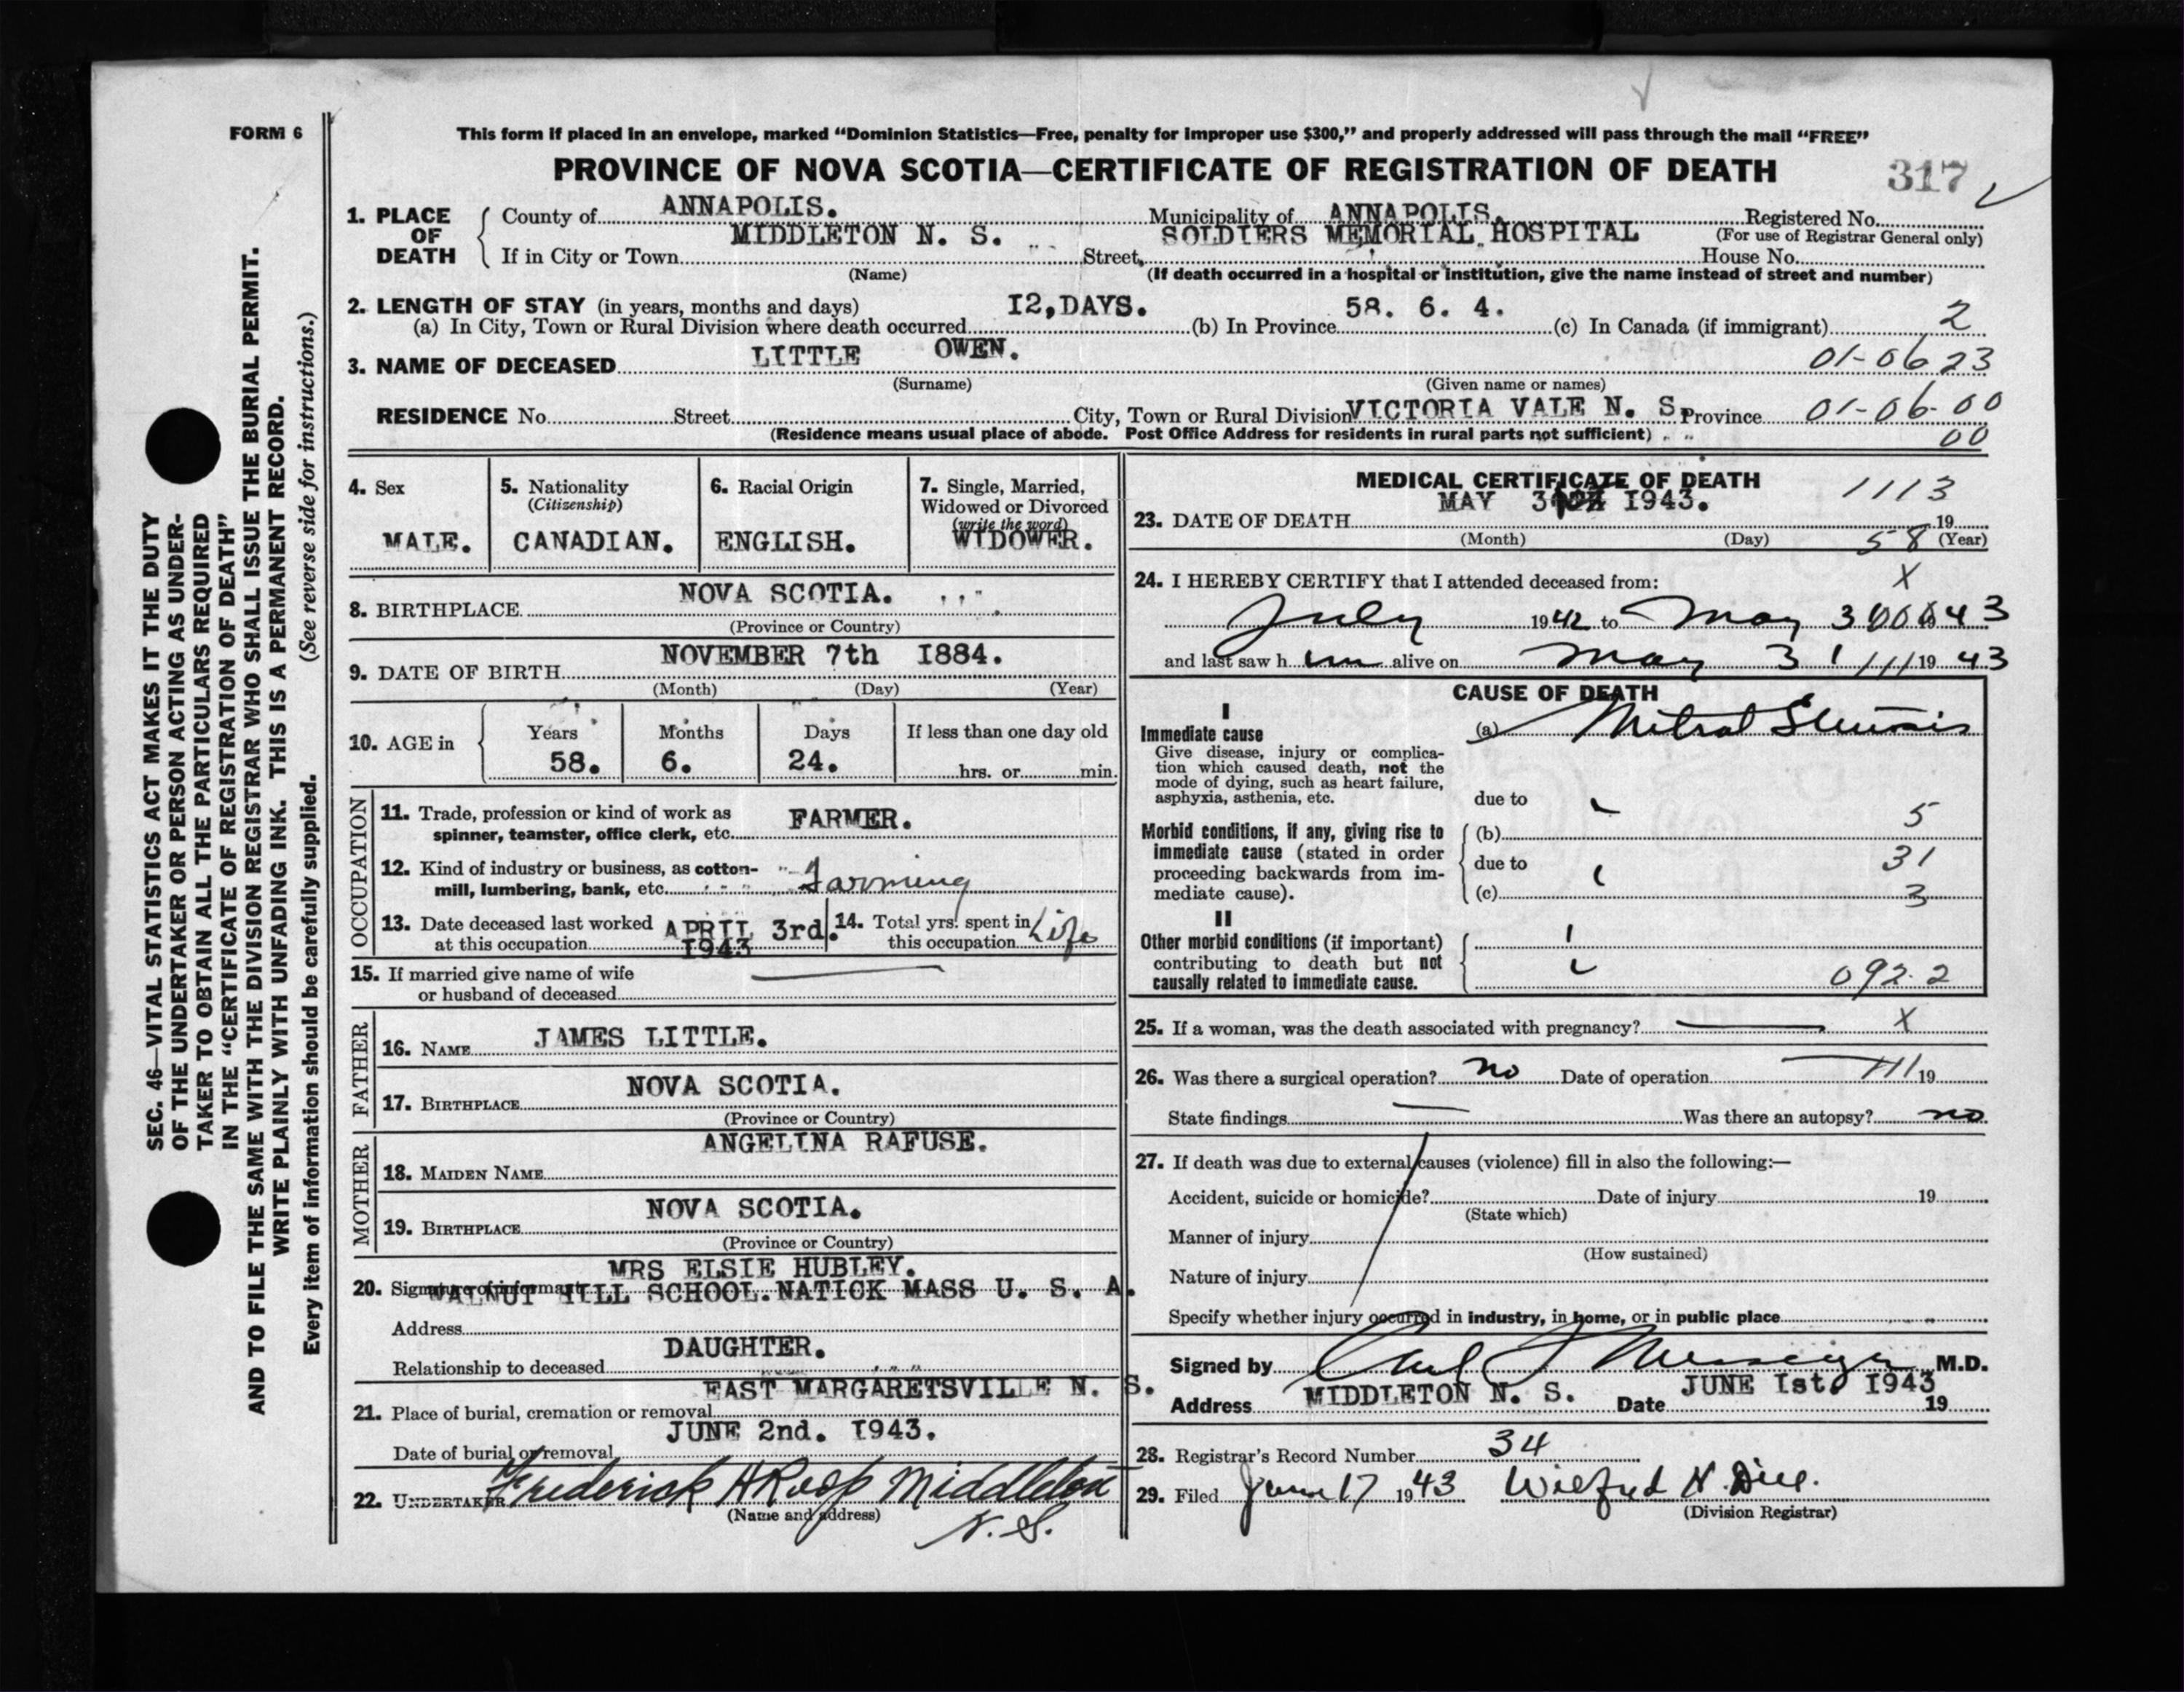 FORM 6
This form if placed in an envelope, marked “Dominion Statistics—Free, penalty for improper use $300,” and properly addressed will pass through the mail “FREE”
PROVINCE OF NOVA SCOTIA—CERTIFICATE OF REGISTRATION OF DEATH 317
1. PLACE OF DEATH
County of ANNAPOLIS. Municipality of ANNAPOLIS. Registered No.
(For use of Registrar General only)
If in City or Town MIDDLETON N. S. Street, SOLDIERS MEMORIAL HOSPITAL House No.
(Name) (If death occurred in a hospital or institution, give the name instead of street and number)
2. LENGTH OF STAY (in years, months and days)
(a) In City, Town or Rural Division where death occurred 12,DAYS. (b) In Province 58. 6. 4. (c) In Canada (if immigrant) 2
3. NAME OF DECEASED LITTLE OWEN. 01-06 23
(Surname) (Given name or names)
RESIDENCE No. Street City, Town or Rural Division VICTORIA VALE N. S. Province 01-06-00
(Residence means usual place of abode. Post Office Address for residents in rural parts not sufficient) 00
4. Sex
MALE.
5. Nationality
(Citizenship)
CANADIAN.
6. Racial Origin
ENGLISH.
7. Single, Married,
Widowed or Divorced
(write the word)
WIDOWER.
8. BIRTHPLACE NOVA SCOTIA.
(Province or Country)
9. DATE OF BIRTH NOVEMBER 7th 1884.
(Month) (Day) (Year)
10. AGE in
Years Months Days If less than one day old
58. 6. 24. hrs. or min.
OCCUPATION
11. Trade, profession or kind of work as
spinner, teamster, office clerk, etc. FARMER.
12. Kind of industry or business, as cotton-
mill, lumbering, bank, etc. Farming
13. Date deceased last worked
at this occupation APRIL 3rd. 1943
14. Total yrs. spent in
this occupation Life
15. If married give name of wife
or husband of deceased
FATHER
16. NAME JAMES LITTLE.
17. BIRTHPLACE NOVA SCOTIA.
(Province or Country)
MOTHER
18. MAIDEN NAME ANGELINA RAFUSE.
19. BIRTHPLACE NOVA SCOTIA.
(Province or Country)
MRS ELSIE HUBLEY.
20. Signature of informant WALNUT HILL SCHOOL.NATICK MASS U. S. A.
Address
Relationship to deceased DAUGHTER.
21. Place of burial, cremation or removal EAST MARGARETSVILLE N. S.
Date of burial or removal JUNE 2nd. 1943.
22. UNDERTAKER Frederick H Roop Middleton
(Name and address) N. S.
MEDICAL CERTIFICATE OF DEATH 1113
23. DATE OF DEATH MAY 1943. 19
(Month) (Day) (Year) 58
24. I HEREBY CERTIFY that I attended deceased from: X
July 1942 to May 43
and last saw h im alive on May 31 19 43
CAUSE OF DEATH
I
Immediate cause
Give disease, injury or complica-
tion which caused death, not the
mode of dying, such as heart failure,
asphyxia, asthenia, etc.
(a) Mitral Stenosis
due to
Morbid conditions, if any, giving rise to
immediate cause (stated in order
proceeding backwards from im-
mediate cause).
(b) 5
due to 31
(c) 3
II
Other morbid conditions (if important)
contributing to death but not
causally related to immediate cause.
092.2
25. If a woman, was the death associated with pregnancy? X
26. Was there a surgical operation? no Date of operation 19
State findings Was there an autopsy? no
27. If death was due to external causes (violence) fill in also the following:—
Accident, suicide or homicide? Date of injury 19
(State which)
Manner of injury
(How sustained)
Nature of injury
Specify whether injury occurred in industry, in home, or in public place
Signed by M.D.
Address MIDDLETON N. S. Date JUNE 1st. 1943 19
28. Registrar's Record Number 34
29. Filed June 17 1943 Wilfred H. Dill.
(Division Registrar)
SEC. 46—VITAL STATISTICS ACT MAKES IT THE DUTY
OF THE UNDERTAKER OR PERSON ACTING AS UNDER-
TAKER TO OBTAIN ALL THE PARTICULARS REQUIRED
IN THE “CERTIFICATE OF REGISTRATION OF DEATH”
AND TO FILE THE SAME WITH THE DIVISION REGISTRAR WHO SHALL ISSUE THE BURIAL PERMIT.
WRITE PLAINLY WITH UNFADING INK. THIS IS A PERMANENT RECORD.
Every item of information should be carefully supplied. (See reverse side for instructions.)